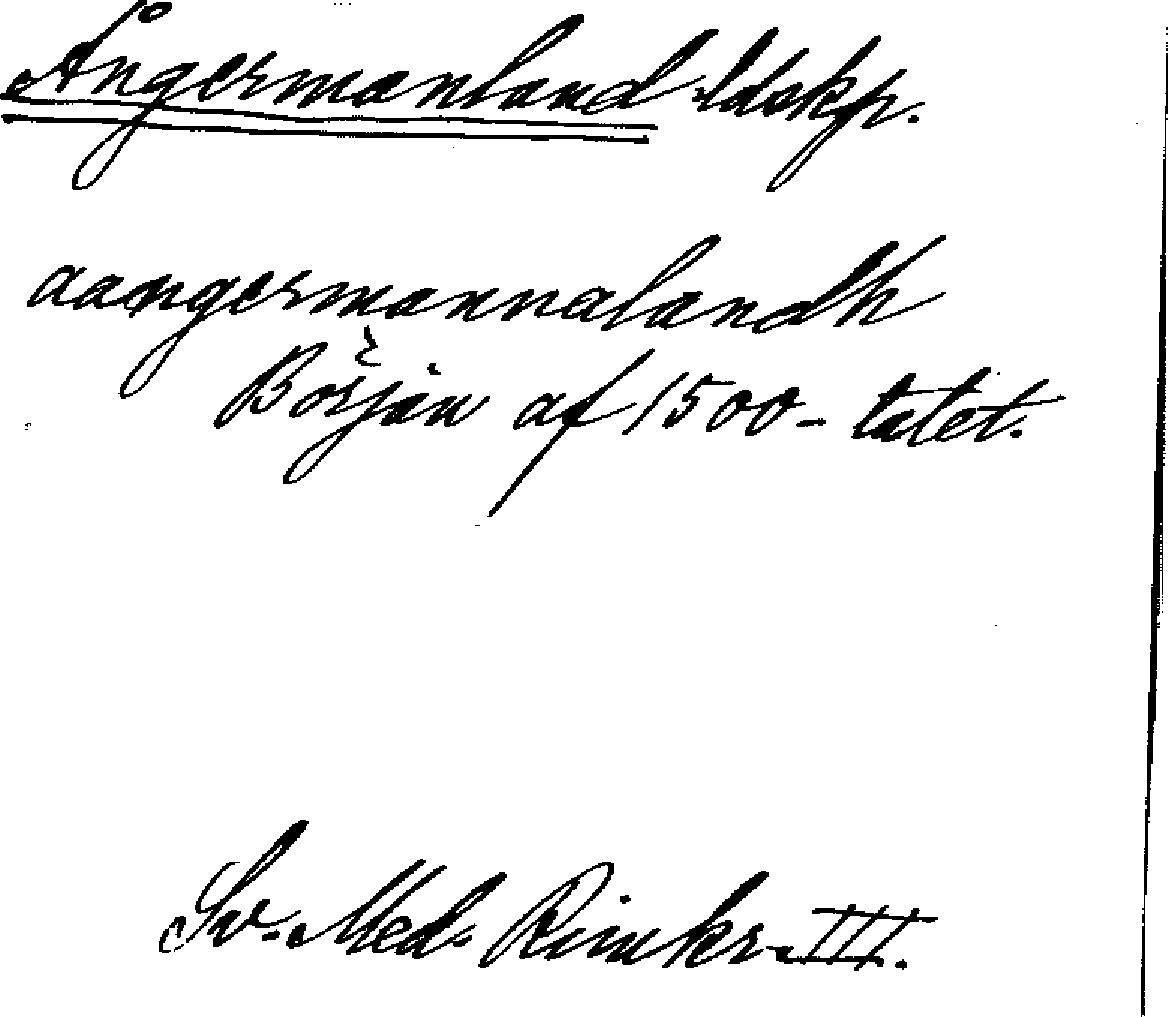 Ångermanland ldskp.
aangermannalandh
Början af 1500-talet.
Sv. Med. Rimkr. III.